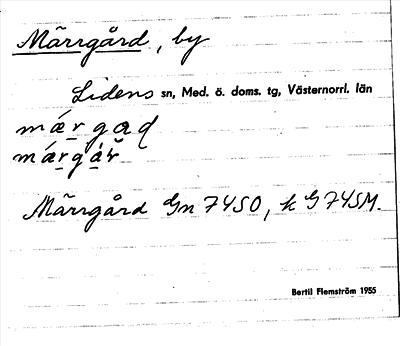 Märrgård, by
Lidens sn, Med. ö. doms. tg, Västernorrl. län
Märrgård Gn 74SO, k G 74SM.
Bertil Flemström 1955